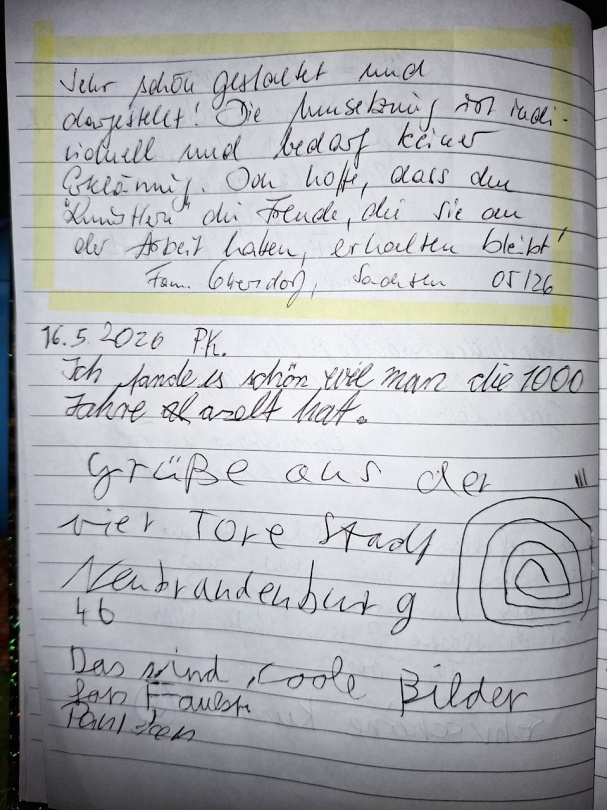 Sehr schön gestaltet und
dargestellt! Die Umsetzung ist indi-
viduell und bedarf keiner
Erklärung. Ich hoffe, dass den
"Künstlern" die Freude, die sie an
der Arbeit haben, erhalten bleibt!
Fam. Sachsen 05/26
16.5.2026 PK.
Ich fande es schön weil man die 1000
Jahre hat.
Grüße aus der
vier Tore Stadt
Neubrandenburg
46
Das sind coole Bilder